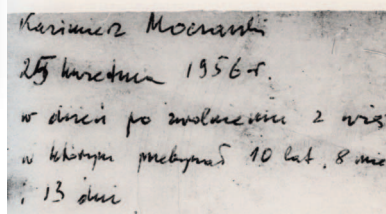 Kazimierz Moczarski
25 kwietnia 1956 r.
w dzień po zwolnieniu z wię
w którym przebywał 10 lat, 8 mie
i 13 dni